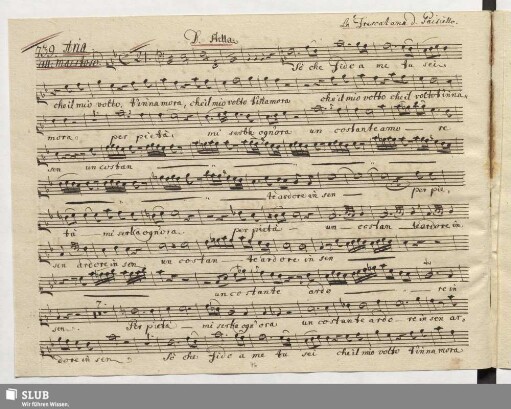 La Frescatana d. Paisiello.
739 Aria D. Atto
All: maestoso
Sò che fido a me tu sei
che il mio volto, t'innamora, che il mio volto t'innamora che il mio volto che il volto t'inna,
mora, per pietà, mi serba ognora un costante amo re
sen un costan
te ardore in sen per pie,
tà mi serba ognora. per pietà un costan te ardore in
sen ardore in sen un costan te ardore in sen
un costante ardo re in
sen. Per pietà mi serba ogn'ora un costante ardo re in sen ar,
dore in sen. Sò che fido a me tu sei che il mio volto t'innamora
SLUB
Wir führen Wissen.